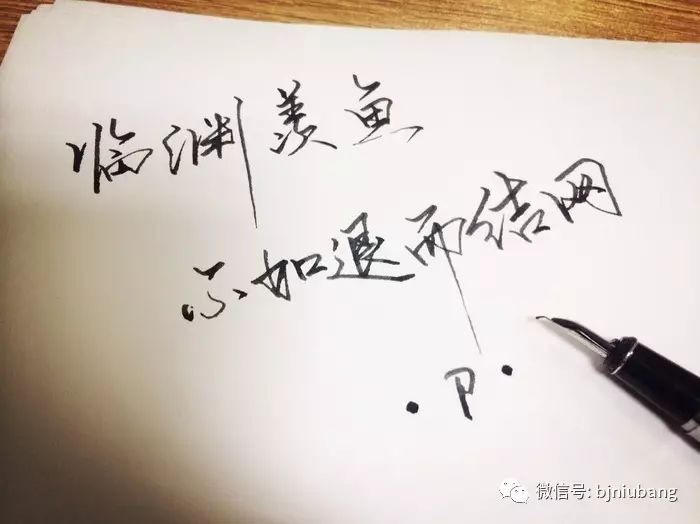 临渊羡鱼
不如退而结网
·P·
微信号: bjniubang